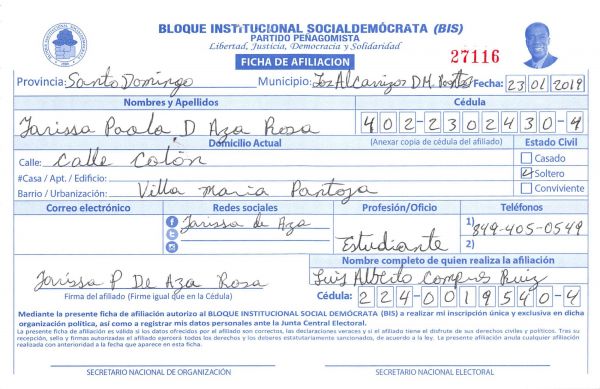 BLOQUE INSTITUCIONAL SOCIALDEMÓCRATA (BIS)
PARTIDO PEÑAGOMISTA
Libertad, Justicia, Democracia y Solidaridad
FICHA DE AFILIACION
27116
Provincia: Santo Domingo Municipio: Los Alcarrizos D.M. Fecha: 23 01 2019
Nombres y Apellidos Cédula
Jarissa Paola D Aza Rosa 402-2302430-4
Domicilio Actual (Anexar copia de cédula del afiliado) Estado Civil
Calle: Calle Colón Casado
#Casa / Apt. / Edificio: Soltero
Barrio / Urbanización: Villa Maria Pantoja Conviviente
Correo electrónico Redes sociales Profesión/Oficio Teléfonos
Jarissa de Aza Estudiante 1) 849-405-0549
2)
Nombre completo de quien realiza la afiliación
Jarissa P De Aza Rosa Luis Alberto Compres Ruiz
Firma del afiliado (Firme igual que en la Cédula) Cédula: 224-0019540-4
Mediante la presente ficha de afiliación autorizo al BLOQUE INSTITUCIONAL SOCIAL DEMÓCRATA (BIS) a realizar mi inscripción única y exclusiva en dicha
organización política, así como a registrar mis datos personales ante la Junta Central Electoral.
La presente ficha de afiliación es válida si los datos ofrecidos por el afiliado son correctos, las declaraciones veraces y si el afiliado tiene el disfrute de sus derechos civiles y políticos. Tras su
recepción, sello y firmas autorizadas el afiliado ejercerá todos los derechos y los deberes estatutariamente sancionados, de acuerdo a la ley. La presente afiliación anula cualquier afiliación
realizada con anterioridad a la fecha que aparece en esta ficha.
SECRETARIO NACIONAL DE ORGANIZACIÓN SECRETARIO NACIONAL ELECTORAL